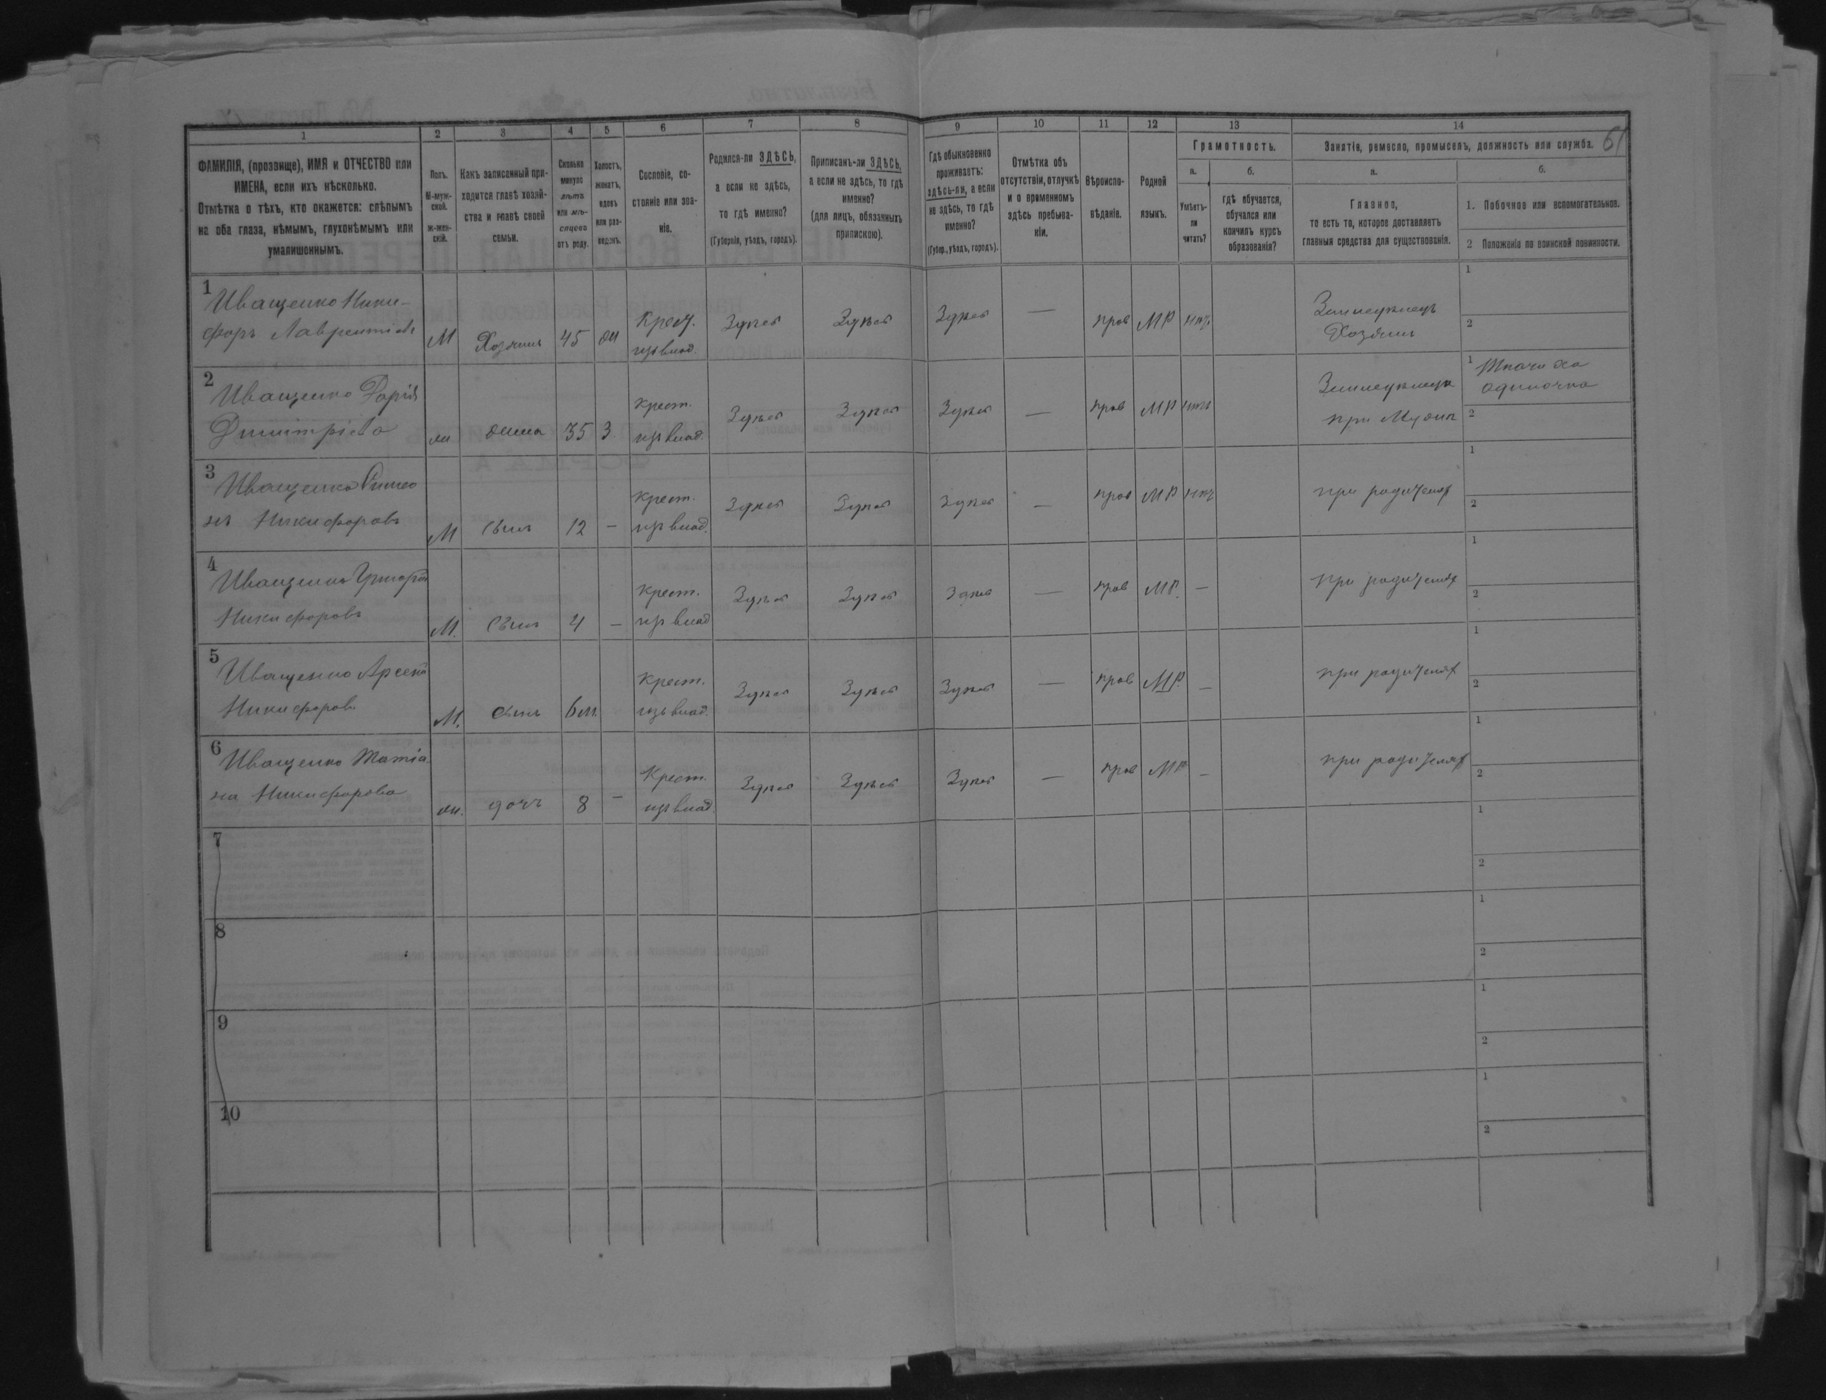 1 2 3 4 5 6 7 8 9 10 11 12 13 14
61
ФАМИЛІЯ, (прозвище), ИМЯ и ОТЧЕСТВО или
ИМЕНА, если ихъ нѣсколько.
Отмѣтка о тѣхъ, кто окажется: слѣпымъ
на оба глаза, нѣмымъ, глухонѣмымъ или
умалишеннымъ.
Полъ.
М-муж-
ской.
ж-жен-
скій.
Какъ записанный при-
ходится главѣ хозяй-
ства и главѣ своей
семьи.
Сколько
минуло
лѣтъ
или мѣ-
сяцевъ
отъ роду.
Холостъ,
женатъ,
вдовъ
или раз-
веденъ.
Сословіе, со-
стояніе или зва-
ніе.
Родился-ли ЗДѢСЬ,
а если не здѣсь,
то гдѣ именно?
(Губернія, уѣздъ, городъ).
Приписанъ-ли ЗДѢСЬ,
а если не здѣсь, то гдѣ
именно?
(для лицъ, обязанныхъ
припискою).
Гдѣ обыкновенно
проживаетъ:
здѣсь-ли, а если
не здѣсь, то гдѣ
именно?
(Губер., уѣздъ, городъ).
Отмѣтка объ
отсутствіи, отлучкѣ
и о временномъ
здѣсь пребыва-
ніи.
Вѣроиспо-
вѣданіе.
Родной
языкъ.
Грамотность.
а.
Умѣетъ-
ли
читать?
б.
гдѣ обучается,
обучался или
кончилъ курсъ
образованія?
Занятіе, ремесло, промыселъ, должность или служба.
а.
Главное,
то есть то, которое доставляетъ
главныя средства для существованія.
б.
1. Побочное или вспомогательное.
2 Положеніе по воинской повинности.
1
Иващенко Ники-
форъ Лаврентіев
М Хозяинъ 45 Крест.
изъ влад. Здѣсь Здѣсь Здѣсь — прав МР нѣтъ
Земледѣлецъ
Хозяинъ
1
2
2
Иващенко Дарія
Дмитріева
жена 35 З крест.
изъ влад. Здѣсь Здѣсь Здѣсь — прав МР нѣтъ
при Мужѣ
1 Ткачиха
одиночка
2
3
Иващенко Симео
нъ Никифоровъ
М сынъ 12 — крест.
изъ влад. Здѣсь Здѣсь Здѣсь — прав МР нѣтъ
при родителях
1
2
4
Иващенко Григорій
Никифоровъ
М. сынъ 4 — крест.
изъ влад Здѣсь Здѣсь Здѣсь — прав МР. —
при родителях
1
2
5
Иващенко Арсеній
Никифоров.
М. сынъ 6 м крест.
изъ влад. Здѣсь Здѣсь Здѣсь — прав МР. —
при родителях
1
2
6
Иващенко Татіа
на Никифорова
дочь 8 — Крест.
изъ влад. Здѣсь Здѣсь Здѣсь — прав МР —
при родителях
1
2
7
1
2
8
1
2
9
1
2
10
1
2